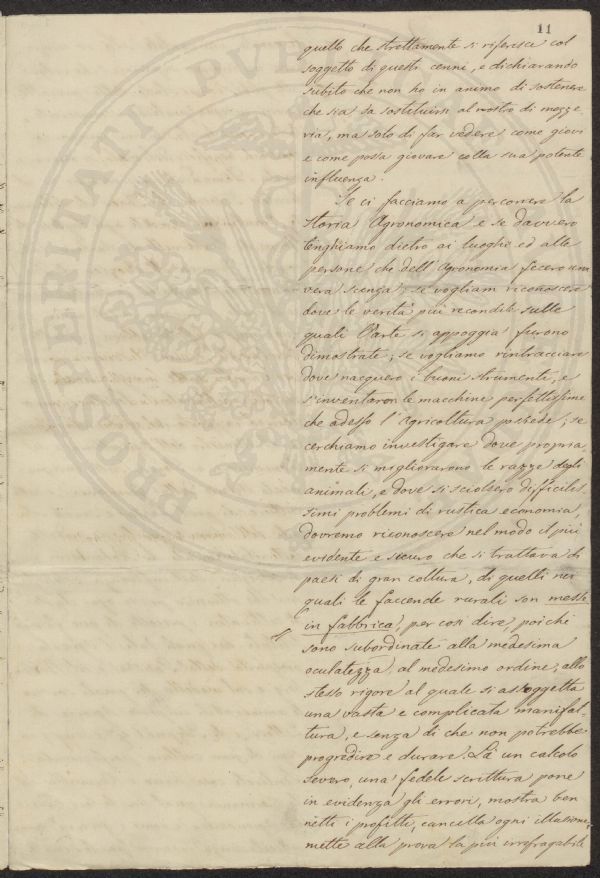 11
quello che strettamente si riferisce col
soggetto di questi cenni, e dichiarando
subito che non ho in animo di sostenere
che sia da sostituirsi al nostro di mezze-
ria, ma solo di far vedere come giovi
e come possa giovare colla sua potente
influenza.
Se ci facciamo a percorrere la
storia Agronomica e se davvero
tenghiamo dietro ai luoghi ed alle
persone che dell'Agronomia fecero una
vera scienza; se vogliam riconoscere
dove le verità più recondite sulle
quali l'arte si appoggia furono
dimostrate; se vogliamo rintracciare
dove nacquero i buoni strumenti, e
s'inventaron le macchine perfettissime
che adesso l'Agricoltura possiede; se
cerchiamo investigare dove propria
mente si migliorarono le razze degli
animali, e dove si sciolsero difficilis
simi problemi di rustica economia,
dovremo riconoscere nel modo il più
evidente e sicuro che si trattava di
paesi di gran coltura, di quelli nei
quali le faccende rurali son messe
in fabbrica, per così dire, poichè
sono subordinate alla medesima
oculatezza, al medesimo ordine, allo
stesso rigore al quale si assoggetta
una vasta e complicata manifat-
tura, e senza di che non potrebbe
progredire e durare. Là un calcolo
severo, una fedele scrittura pone
in evidenza gli errori, mostra ben
netti i profitti, cancella ogni illusione,
mette alla prova la più irrefragabile
PROSPERITATI PUBLICAE